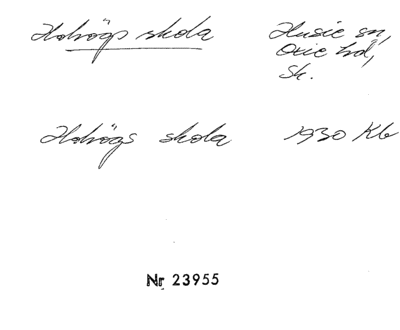 Hohögs skola Husie sn,
Oxie hd,
Sk.
Hohögs skola 1930 Kb
Nr 23955